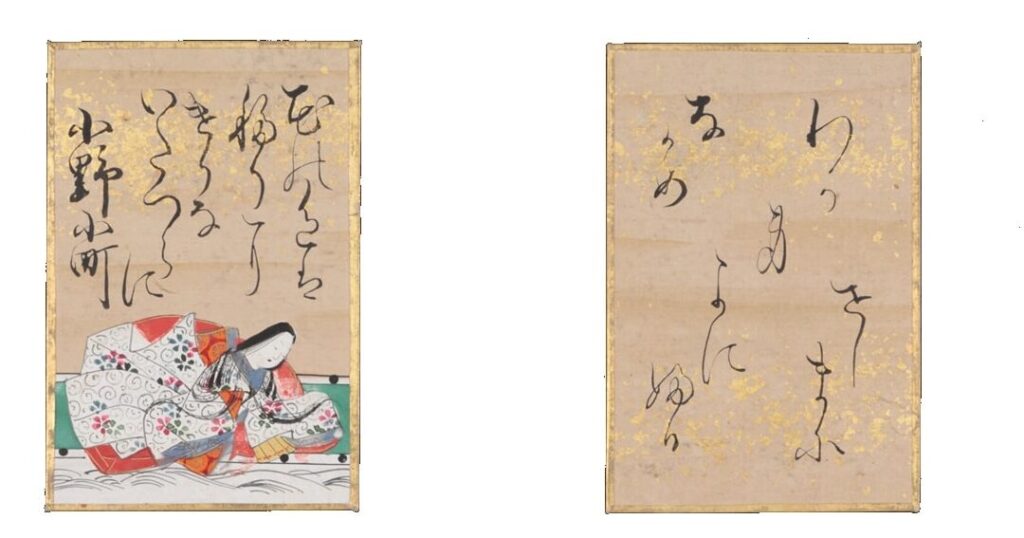 花の色は
移りに
けりな
いたつらに
小野小町
わか
身
よに
ふる
なかめ
せし
まに